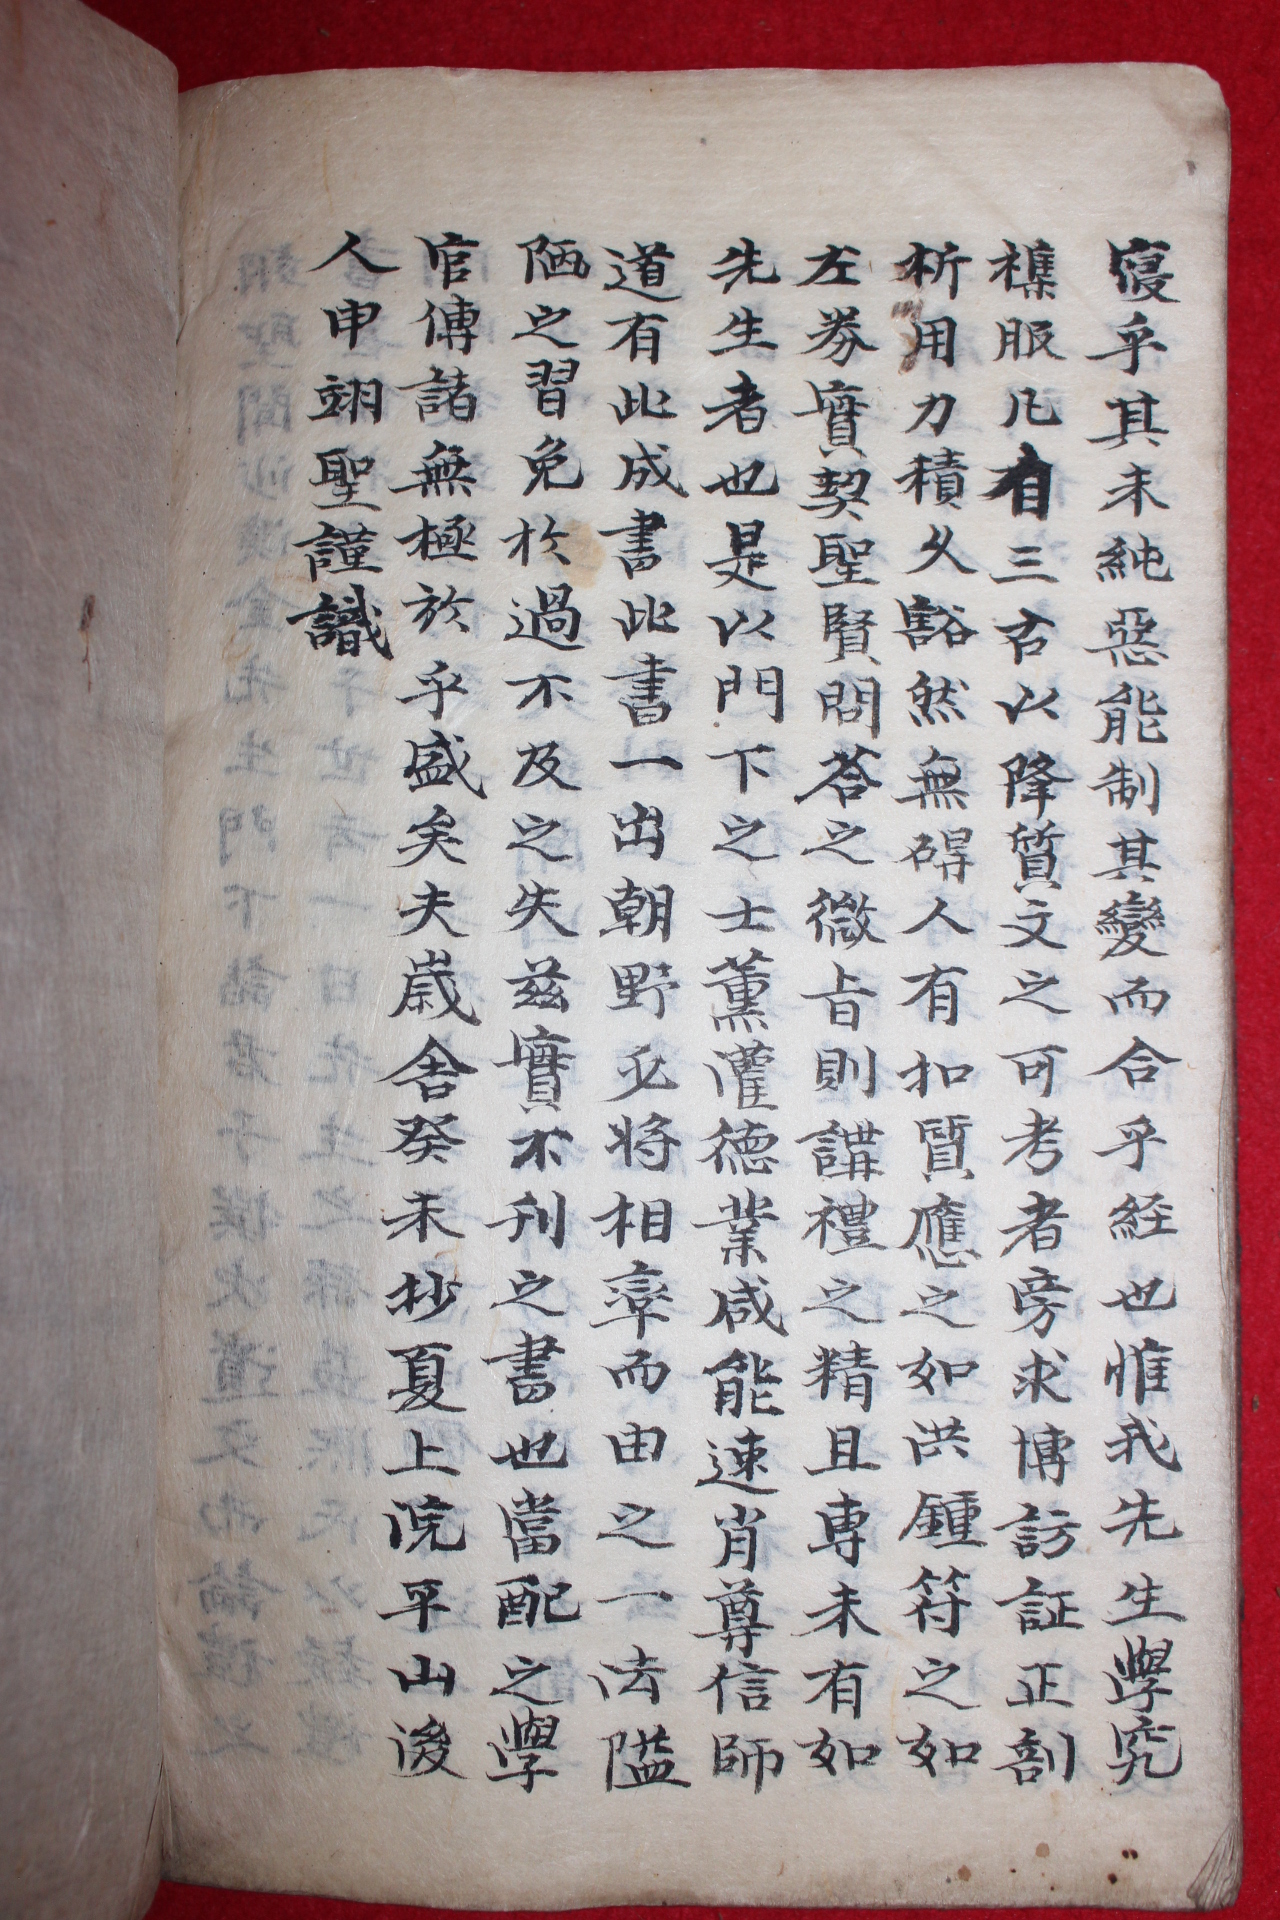 寢乎其未純惡能制其變而合乎經也惟我先生學究
樵服凡有三古以降質文之可考者旁求博訪証正剖
析用力積久豁然無碍人有扣質應之如洪鍾符之如
左券實契聖賢問答之微旨則講禮之精且專未有如
先生者也是以門下之士薰灌德業咸能速肖尊信師
道有此成書此書一出朝野必將相率而由之一法隘
陋之習免於過不及之失玆實不刊之書也當配之學
官傳諸無極於乎盛矣夫歲舍癸未抄夏上浣平山後
人申翊聖謹識